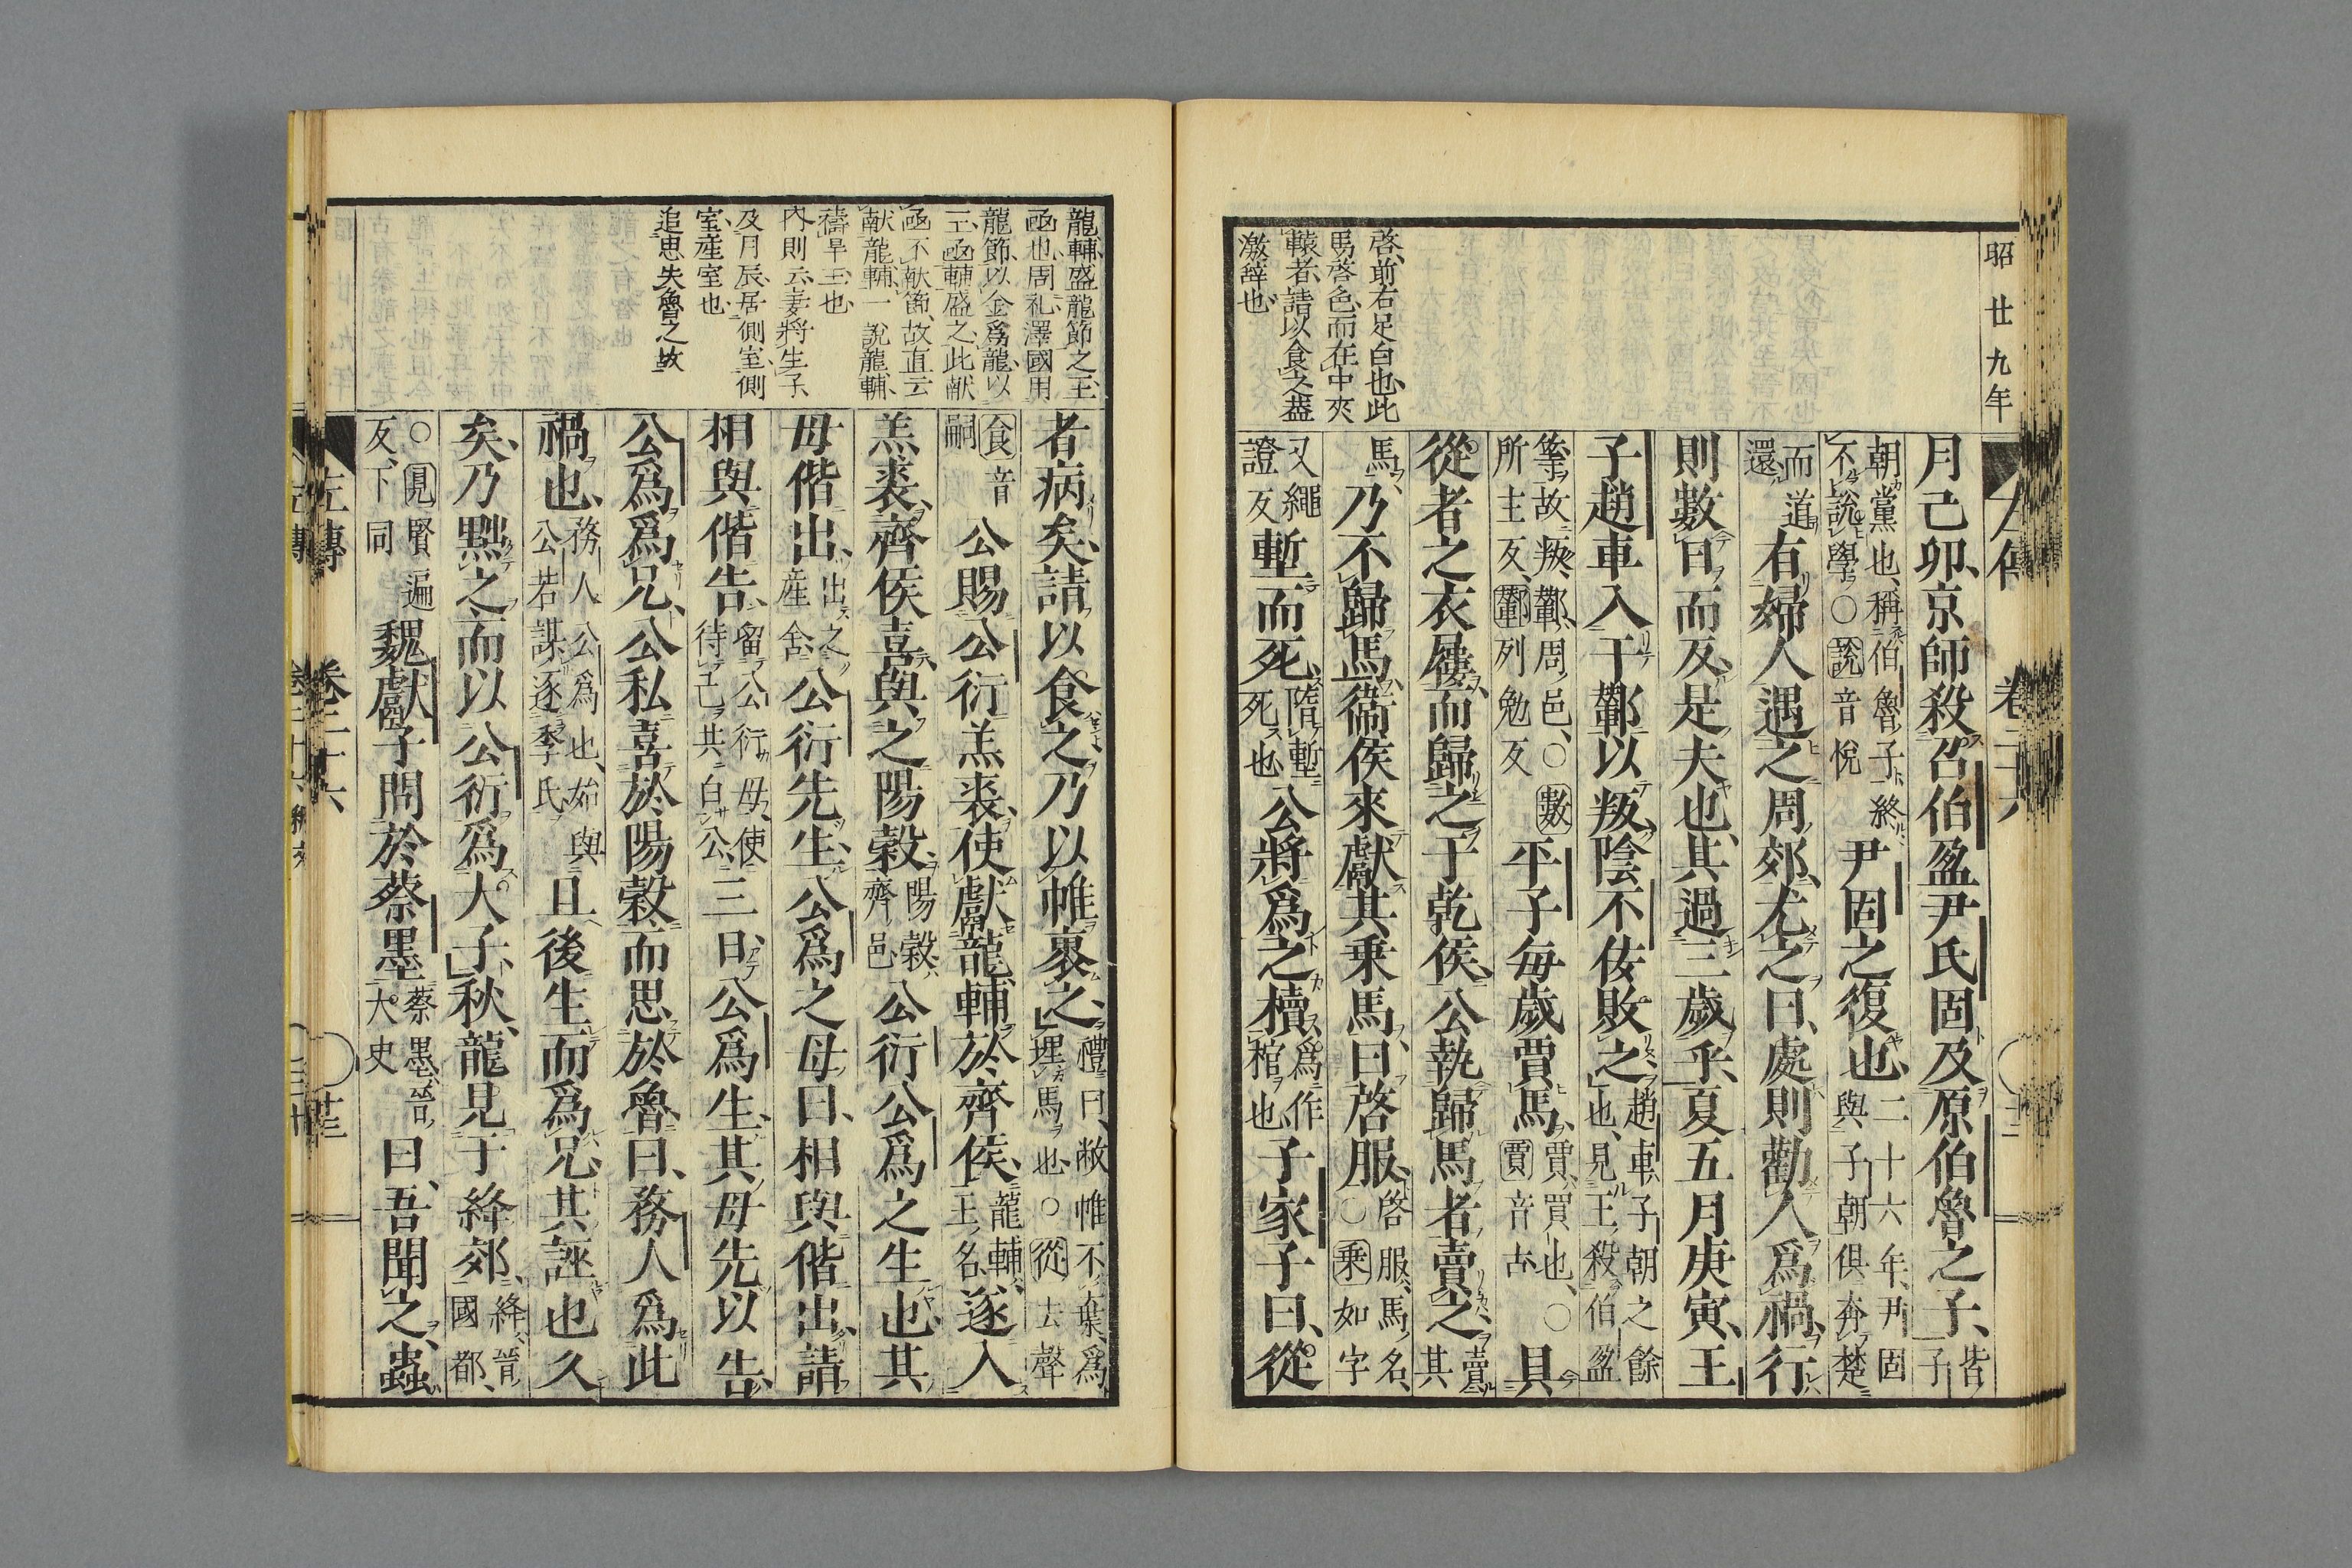 昭廿九年
啓、前右足白也、此
馬啓色、而在中夾
轅者、請以食之、蓋
激辭也
月己卯、京師殺召伯盈尹氏固及原伯魯之子、皆子
朝黨也、稱伯魯子、終不説學○説音悅 尹固之復也、二十六年、尹固與子朝俱奔楚
而道還 有婦人遇之周郊、尤之曰、處則勸人爲禍、行
則數日而反、是夫也、其過三歲乎、夏五月庚寅、王
子趙車入于鄻以叛、陰不佞敗之、趙車、子朝之餘也、見王殺伯盈
等、故叛、鄻、周邑、○數所主反、鄻列勉反 平子每歲賈馬、賈、買也、○賈音古 具
從者之衣屨、而歸之于乾侯、公執歸馬者賣之、賣其
馬、乃不歸馬、衞侯來獻其乘馬、曰啓服、啓服、馬名、○乘如字
又繩證反 塹而死、隋塹死也、公將爲之櫝、爲作棺也、子家子曰、從
左傳 卷二十六
龍輔、盛龍節之玉
凾也、周礼、澤國用
龍節、以金爲龍、以
玉凾輔盛之、此献
凾不献節、故直云
献龍輔、一說龍輔、
禱旱玉也
內則云、妻將生子、
及月辰、居側室、側
室產室也
追思失魯之故
者病矣、請以食之、乃以帷裹之、禮曰、敝帷不弃、爲埋馬也、○從去聲
食音嗣 公賜公衍羔裘、使獻龍輔於齊侯、龍輔、玉名、遂入
羔裘、齊侯喜、與之陽穀、陽穀、齊邑 公衍公爲之生也、其
母偕出、出之產舍 公衍先生、公爲之母曰、相與偕出、請
相與偕告、留公衍母、使待己共白公、三日、公爲生、其母先以告、
公爲爲兄、公私喜於陽穀、而思於魯曰、務人爲此
禍也、務人公爲也、始與公若謀逐季氏 且後生而爲兄、其誣也久
矣、乃黜之、而以公衍爲大子、秋、龍見于絳郊、絳、晉國都、
○見賢遍反、下同 魏獻子問於蔡墨、蔡墨、晉大史 曰、吾聞之、蟲
左傳 卷二十六